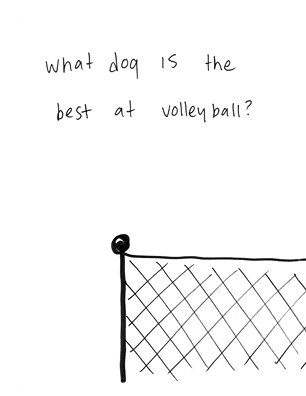 what dog is the
best at volleyball?